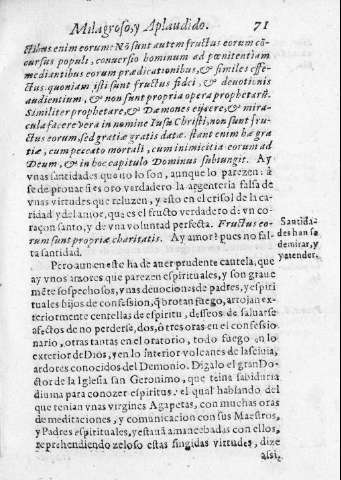 Milagroso, y Aplaudido. 71
ctibus enim eorum: Nõ sunt autem fructus eorum cõ-
cursus populi, conversio hominum ad pœnitentiam
mediantibus eorum prædicationibus, & similes effe-
ctus. quoniam isti sunt fructus fidei, & devotionis
audientium, & non sunt propria opera prophetarũ.
Similiter prophetare, & Dæmones eijcere, & mira-
cula facere verà in nomine Iusu Christi, non sunt fru-
ctus eorum, sed gratiæ gratis datæ. stant enim hæ gra
tiæ, cum peccato mortali, cum inimicitia eorum ad
Deum, & in hoc capitulo Dominus subiungit. Ay
vnas santidades que no lo son, aunque lo parezen: à
se de prouar si es oro verdadero la argenteria falsa de
vnas virtudes que reluzen, y esto en el crisol de la ca-
ridad y del amor, que es el fructo verdadero de vn co-
raçon santo, y de vna voluntad perfecta. Fructus eo-
rum sunt propriæ charitatis. Ay amor? pues no fal-
ta santidad.
Santida-
des han se
de mirar, y
y atender.
Pero aun en este ha de auer prudente cautela, que
ay vnos amores que parezen espirituales, y son graue
mẽte sospechosos, vnas deuociones de padres, y espiri
tuales hijos de confession, q̃ brotan fuego, arrojan ex-
teriormente centellas de espiritu, desseos de saluarse
afectos de no perderse, dos, ò tres oras en el confessio
nario, otras tantas en el oratorio, todo fuego en lo
exterior de Dios, y en lo interior volcanes de lasciuia,
ardores conocidos del Demonio. Digalo el gran Do-
ctor de la Iglesia san Geronimo, que tenia sabiduria
diuina para conozer espiritus: el qual hablando del
que tenian vnas virgines Agapetas, con muchas oras
de meditaciones, y comunicacion con sus Maestros,
y Padres espirituales, y estauã amancebadas con ellos,
reprehendiendo zeloso estas fingidas virtudes, dize
assi.